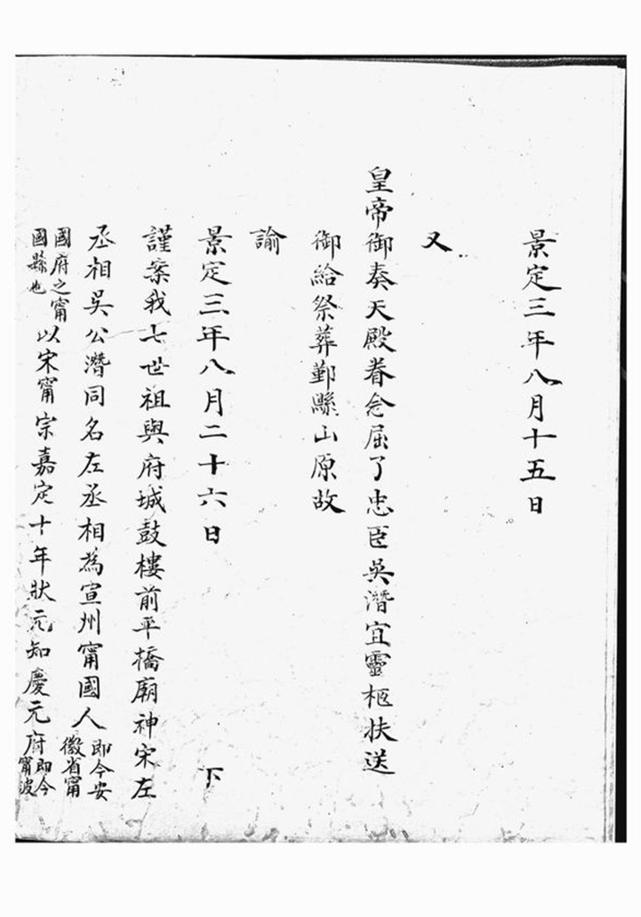 景定三年八月十五日
又
皇帝御奏天殿眷念屈了忠臣吳潛宜靈柩扶送
御給祭葬鄞縣山原故
諭
景定三年八月二十六日 下
謹案我七世祖與府城鼓樓前平橋廟神宋左
丞相吳公潛同名左丞相為宣州甯國人即今安徽省甯
國府之甯國縣也以宋甯宗嘉定十年狀元知慶元府即今甯波